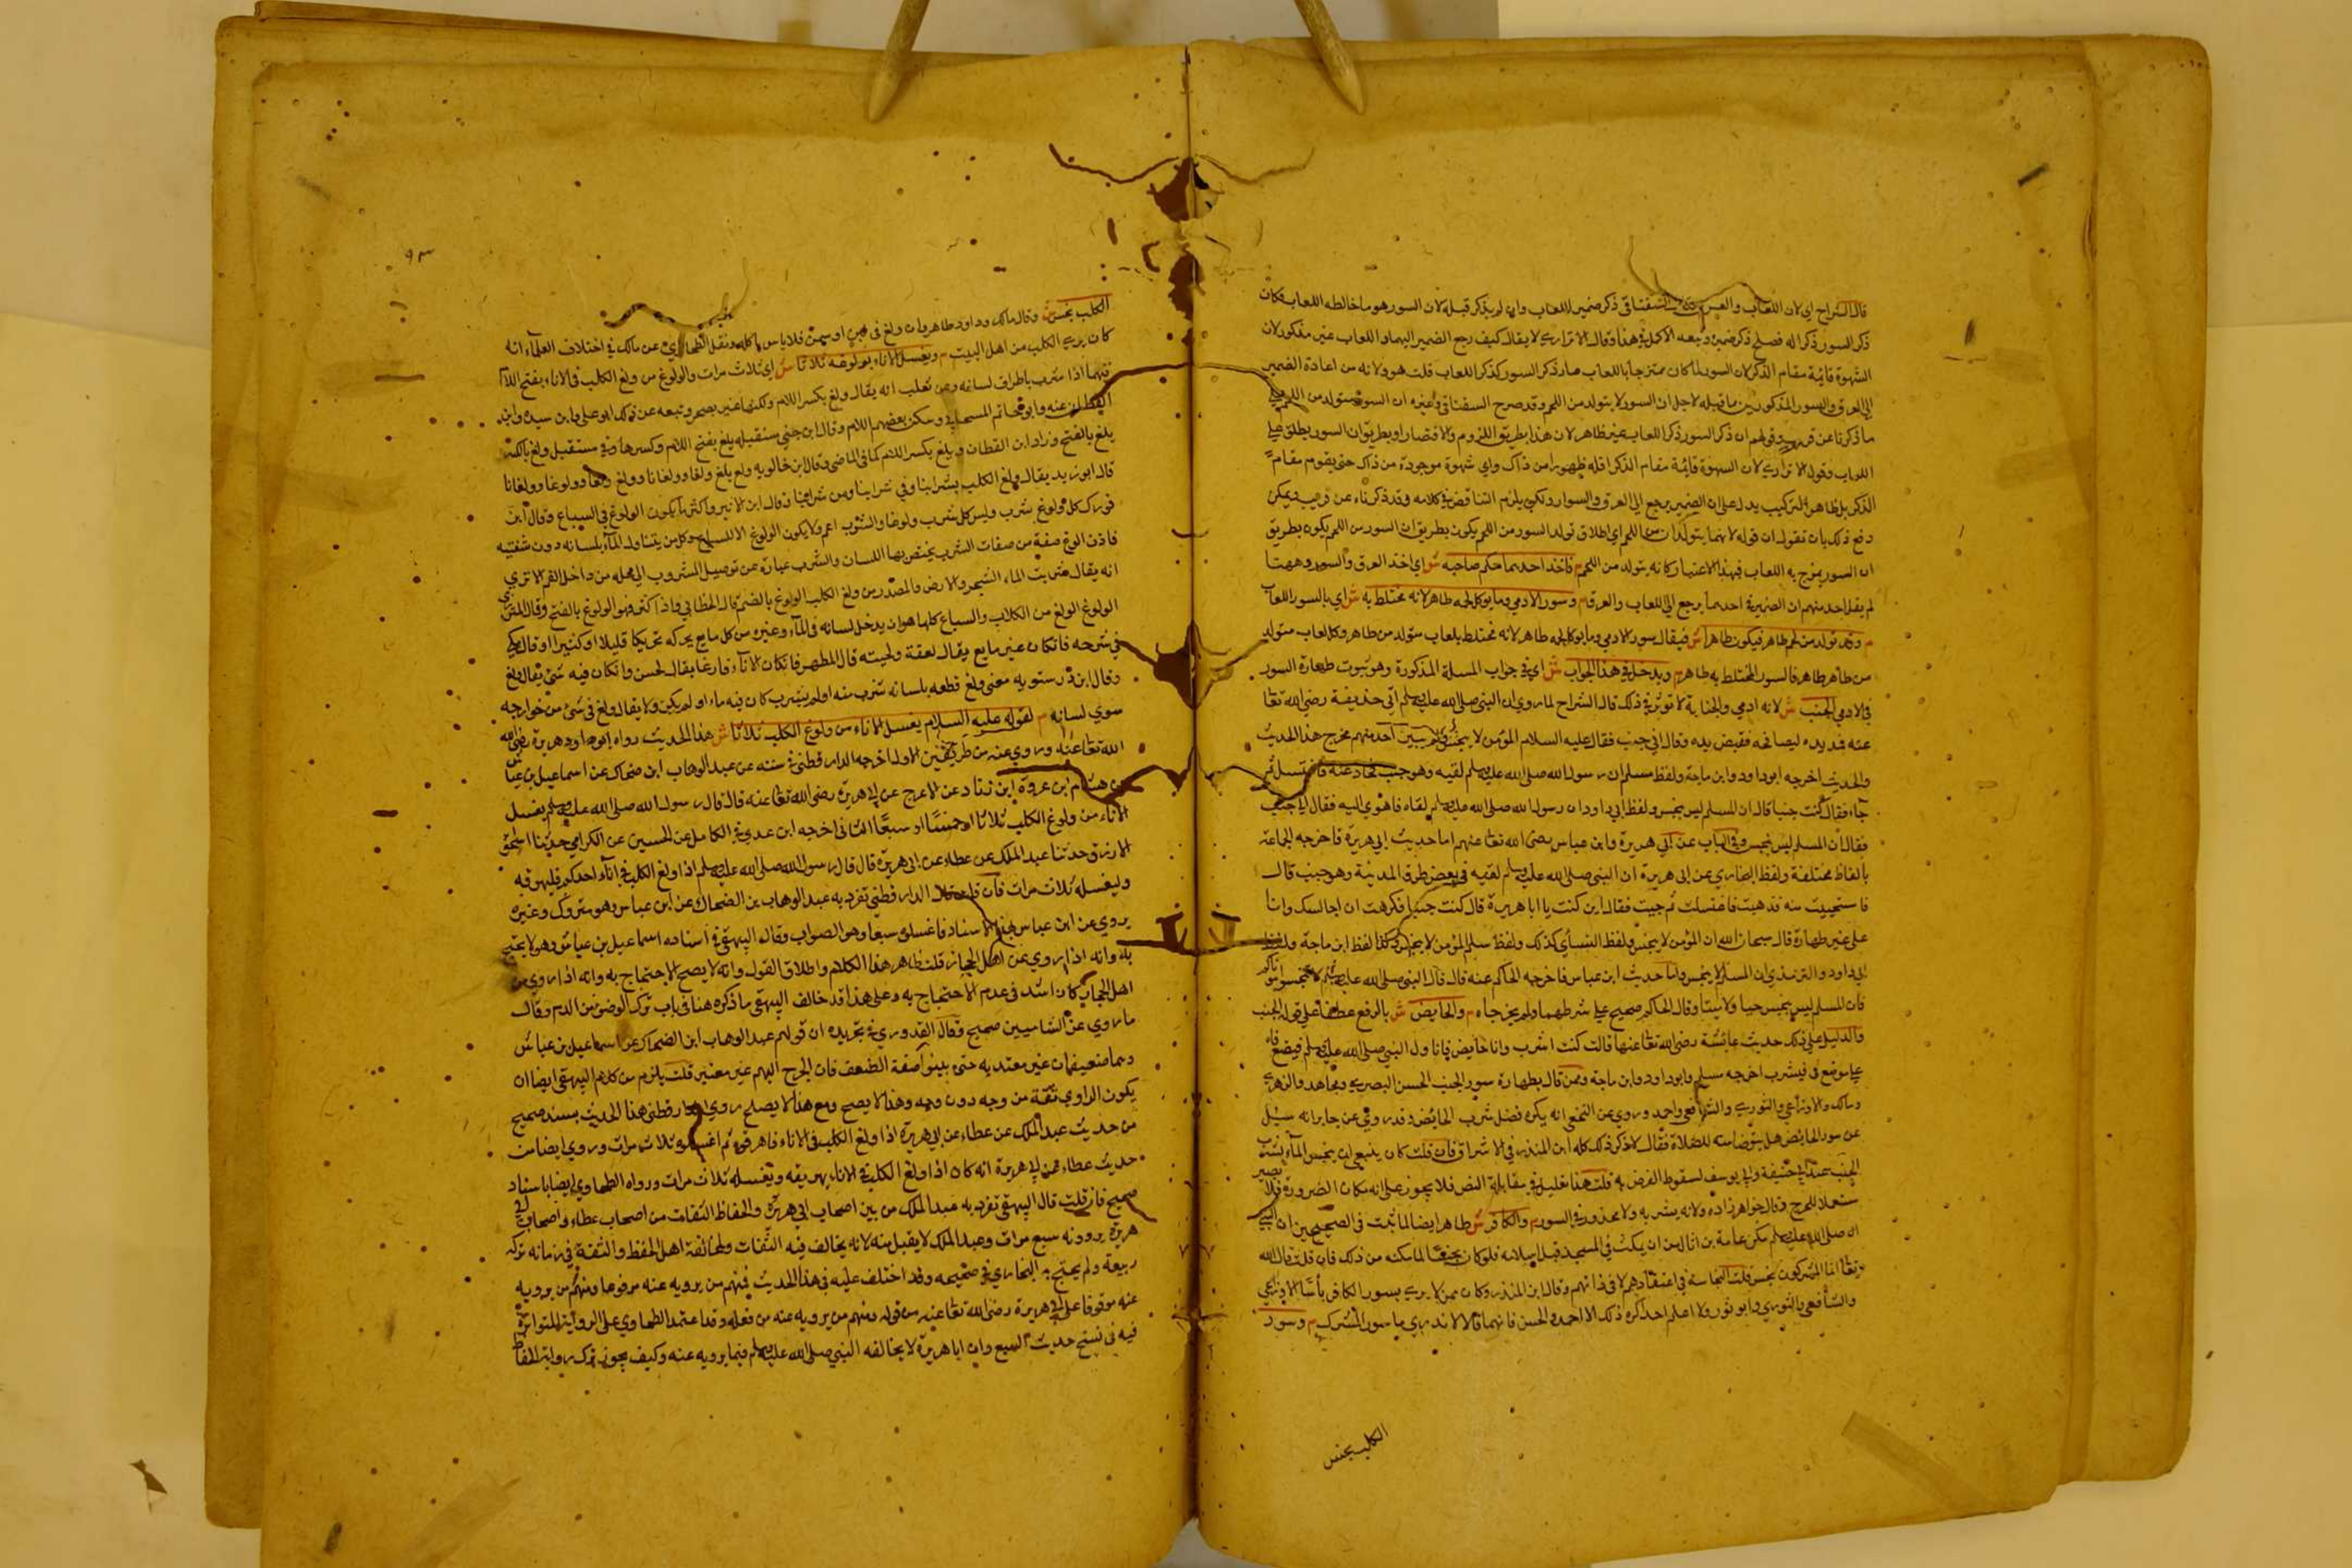 قال الشراح اي لان اللعاب والعرق وقال السغناقي ذكر ضمير اللعاب وان لم يذكر قبله لان السور هو ما خالطه اللعاب فكان
ذكر السور ذكرا له فصلح ذكر ضميره وتبعه الاكمل في هذا وقال الاترازي لا يقال كيف رجع الضمير اليهما واللعاب غير مذكور لان
الشهوة قائمة مقام الذكر لان السور لما كان ممتزجا باللعاب صار ذكر السور كذكر اللعاب قلت هو ولانه من اعادة الضمير
الى العرق والسور المذكورين ما قبله لاجل ان السور لا يتولد من اللحم وقد صرح السغناقي وغيره ان السور متولد من اللحم
ما ذكرنا عن قريب وقولهم ان ذكر السور ذكر اللعاب غير ظاهر لان هذا بطريق اللزوم والاقتصار او بطريق ان السور يطلق على
اللعاب وقول الاترازي لان الشهوة قائمة مقام الذكر اقله ظهورا من ذاك واي شهوة موجودة من ذاك حتى يقوم مقام
الذكر بل ظاهر التركيب يدل على ان الضمير يرجع الى العرق والسوار ولكن يلزم التناقض في كلامه وقد ذكرناه عن قريب ويمكن
دفع ذلك بان نقول ان قوله لانهما يتولدان من اللحم اي اطلاق تولد السور من اللحم يكون بطريق ان السور من اللحم يكون بطريق
ان السور يمزج به اللعاب فبهذا الاعتبار كانه يتولد من اللحم م فاخذ احدهما حكم صاحبه ش اي اخذ العرق والسور وههنا
لم يقل احد منهم ان الضمير في احدهما يرجع الى اللعاب والعرق م وسور الادمي وما يوكل لحمه طاهر لانه مختلط به ش اي بالسور اللعاب
م وقد تولد من لحم طاهر فيكون طاهرا ش فيقال سور الادمي وما يوكل لحمه طاهر لانه مختلط بلعاب متولد من طاهر وكل لعاب متولد
من طاهر طاهر فالسور المختلط به طاهر م ويدخل في هذا الجواب ش اي في جواب المسلة المذكورة وهو ثبوت طهارة السور
في الادمي الجنب ش لانه ادمي والجنابة لا تؤثر في ذلك قال الشراح لما روي ان النبي صلى الله عليه وسلم اتي حذيفة رضي الله تعا
عنه فمد يده ليصافحه فقبض يده وقال اني جنب فقال عليه السلام المؤمن لا ينجس ولم يبين احد منهم مخرج هذا الحديث
والحديث اخرجه ابوداود وابن ماجة ولفظ مسلم ان رسول الله صلى الله عليه وسلم لقيه وهو جنب فحاد عنه فاغتسل ثم
جاء فقال كنت جنبا قال ان المسلم ليس بنجس ولفظ ابي داود ان رسول الله صلى الله عليه وسلم لقاه فاهوى اليه فقال اني جنب
فقال ان المسلم ليس بنجس وفي الباب عن ابي هريرة وابن عباس رضي الله تعا عنهم اما حديث ابي هريرة فاخرجه الجماعة
بالفاظ مختلفة ولفظ البخاري عن ابي هريرة ان النبي صلى الله عليه وسلم لقيه في بعض طرق المدينة وهو جنب قال
فاستحييت منه فذهبت فاغتسلت ثم جيت فقال اين كنت يا ابا هريرة قال كنت جنبا فكرهت ان اجالسك وانا
على غير طهارة قال سبحان الله ان المؤمن لا ينجس ولفظ النسأي كذلك ولفظ مسلم المؤمن لا ينجس وكذا لفظ ابن ماجة ولفظ
ابي داود والترمذي ان المسلم لا ينجس واما حديث ابن عباس فاخرجه الحاكم عنه قال قال النبي صلى الله عليه وسلم لا تنجسوا موتاكم
فان المسلم ليس بنجس حيا ولا ميتا وقال الحاكم صحيح على شرطهما ولم يخرجاه م والحايض ش بالرفع عطفا على قوله الجنب
والدليل على ذلك حديث عائشة رضي الله تعا عنها قالت كنت اشرب وانا حايض فاناول النبي صلى الله عليه وسلم فيضع فاه
على موضع في فيشرب اخرجه مسلم وابوداود وابن ماجة وممن قال بطهارة سور الجنب الحسن البصري ومجاهد والزهري
ومالك والاوزاعي والثوري والشافعي واحمد وروي عن النخعي انه يكره فضل شرب الحائض وقد روي عن جابر انه سئل
عن سور الحايض هل يتوضا منه للصلاة فقال لا ذكر ذلك كله ابن المنذر في الاشراق فان قلت كان ينبغي ان ينجس الماء بشرب
الجنب عند ابي حنيفة وابي يوسف لسقوط الفرض به قلت هذا تعليل في مقابلة النص فلا يجوز على انه مكان الضرورة فلا يصير
مستعملا للحرج وقال خواهر زاده ولانه يشربه ولا محذور في السور م والكافر ش طاهر ايضا لما ثبت في الصحيحين ان النبي
انه صلى الله عليه وسلم مكن ثمامة بن اثال من ان يمكث في المسجد قبل اسلامه فلو كان نجسا لما مكنه من ذلك فان قلت قال الله
تعا انما المشركون نجس قلت النجاسة في اعتقادهم لا في ذاتهم وقال ابن المنذر وكان ممن لا يرى بسور الكافر بأسا الاوزاعي
والشافعي والثوري وابو ثور ولا اعلم احدا كره ذلك الا احمد والحسن فانهما قالا لا ندري ما سور المشرك م وسور
الكلب نجس
٩٣
الكلب نجس ش وقال مالك وداود طاهر وان ولغ في لبن او سمن فلا باس باكله ونقل الطحاوي عن مالك في اختلاف العلماء انه
كان يرى الكلب من اهل البيت م ويغسل الاناء بولوغه ثلاثا ش اي ثلاث مرات والولوغ من ولغ الكلب في الاناء بفتح اللام
فيهما اذا شرب باطراف لسانه وعن ثعلب انه يقال ولغ بكسر اللام ولكنها غير فصيحة وتبعه على ذلك ابو علي وابن سيده وابن
القطان عنه وابو حاتم السجستاني وسكن بعضهم اللام وقال ابن جني مستقبله يلغ بفتح اللام وكسرها وفي مستقبل ولغ بالكسر
يلغ بالفتح وزاد ابن القطان ويلغ بكسر اللام كما في الماضي وقال ابن خالويه ولغ يلغ ولغا وولغانا وولغ ولوغا وولغانا
قال ابو زيد يقال ولغ الكلب بشرابنا وفي شرابنا ومن شرابنا وقال ابن الاثير واكثر ما يكون الولوغ في السباع وقال ابن
فورك كل ولوغ شرب وليس كل شرب ولوغا والشرب اعم ولا يكون الولوغ الا للسباع وكل من يتناول الماء بلسانه دون شفتيه
فاذن الولغ صفة من صفات الشرب يختص بها اللسان والشرب عبارة عن توصيل المشروب الى محله من داخل الفم الا ترى
انه يقال شربت الماء الشجر والارض والمصدر من ولغ الكلب الولوغ بالضم قال الخطابي واذا كثر فهو الولوغ بالفتح وقال المطرزي
الولوغ الولغ من الكلاب والسباع كلها هو ان يدخل لسانه في الماء وغيره من كل مايع يحركه تحريكا قليلا او كثيرا وقال مكي
في شرحه فان كان غير مايع يقال لعقه ولحسه قال المطهر فان كان الاناء فارغا يقال لحسن وان كان فيه شئ يقال ولغ
وقال ابن درستويه معنى ولغ قطعه بلسانه شرب منه او لم يشرب كان فيه ماء او لم يكن ولا يقال ولغ في شئ من جوارحه
سوى لسانه م لقوله عليه السلام يغسل الاناء من ولوغ الكلب ثلاثا ش هذا الحديث رواه ابو هريرة رضي
الله تعا عنه وروي عنه من طريقين الاول اخرجه الدارقطني في سننه عن عبد الوهاب ابن ضحاك عن اسماعيل بن عياش
عن هشام بن عروة ابن زناد عن الاعرج عن ابي هريرة رضي الله تعا عنه قال قال رسول الله صلى الله عليه وسلم يغسل
الاناء من ولوغ الكلب ثلاثا او خمسا او سبعا الثاني اخرجه ابن عدي في الكامل عن الحسين عن الكرابيسي حدثنا اسحق
الازرق حدثنا عبد الملك عن عطاء عن ابي هريرة قال قال رسول الله صلى الله عليه وسلم اذا ولغ الكلب في اناء احدكم فليهرقه
وليغسله ثلاث مرات فان قلت قال الدارقطني تفرد به عبد الوهاب بن الضحاك عن ابن عياش وهو متروك وغيره
يروي عن ابن عياش بهذا الاسناد فاغسلوه سبعا وهو الصواب وقال البيهقي في اسناده اسماعيل بن عياش وهو لا يحتج
به وانه اذا روي عن اهل الحجاز قلت ظاهر هذا الكلام واطلاق القول وانه لا يصح الاحتجاج به وانه اذا روى عن
اهل الحجاز كان اشد في عدم الاحتجاج به وعلى هذا قد خالف البيهقي ما ذكره هنا في باب ترك الوضوء من الدم وقال
ما روي عن الشاميين صحيح وقال القدوري في تجريده ان قولهم عبد الوهاب ابن الضحاك عن اسماعيل بن عياش
وهما ضعيفان غير معتد به حتى يبينوا صفة الضعف فان الجرح المبهم غير معتبر قلت يلزم من كلام البيهقي ايضا ان
يكون الراوي ثقة من وجه دون وجه وهذا لا يصح ومع هذا لا يصلح روى الدارقطني هذا الحديث بسند صحيح
من حديث عبد الملك عن عطاء عن ابي هريرة اذا ولغ الكلب في الاناء فاهرقوه ثم اغسلوه ثلاث مرات وروي ايضا من
حديث عطاء عن ابي هريرة انه كان اذا ولغ الكلب في الاناء يهريقه ويغسله ثلاث مرات ورواه الطحاوي ايضا باسناد
صحيح فان قلت قال البيهقي تفرد به عبد الملك من بين اصحاب ابي هريرة والحفاظ الثقات من اصحاب عطاء واصحاب ابي
هريرة يروونه سبع مرات وعبد الملك لا يقبل منه لانه يخالف فيه الثقات ولمخالفة اهل الحفظ والثقة في زمانه تركه
ربيعة ولم يحتج به البخاري في صحيحه وقد اختلف عليه في هذا الحديث فمنهم من يرويه عنه مرفوعا ومنهم من يرويه
عنه موقوفا على ابي هريرة رضي الله تعا عنه من قوله ومنهم من يرويه عنه من فعله وقد اعتمد الطحاوي على الرواية المتواترة
فيه في نسخ حديث السبع وان ابا هريرة لا يخالفه النبي صلى الله عليه وسلم فيما يرويه عنه وكيف يجوز ترك رواية الحفاظ